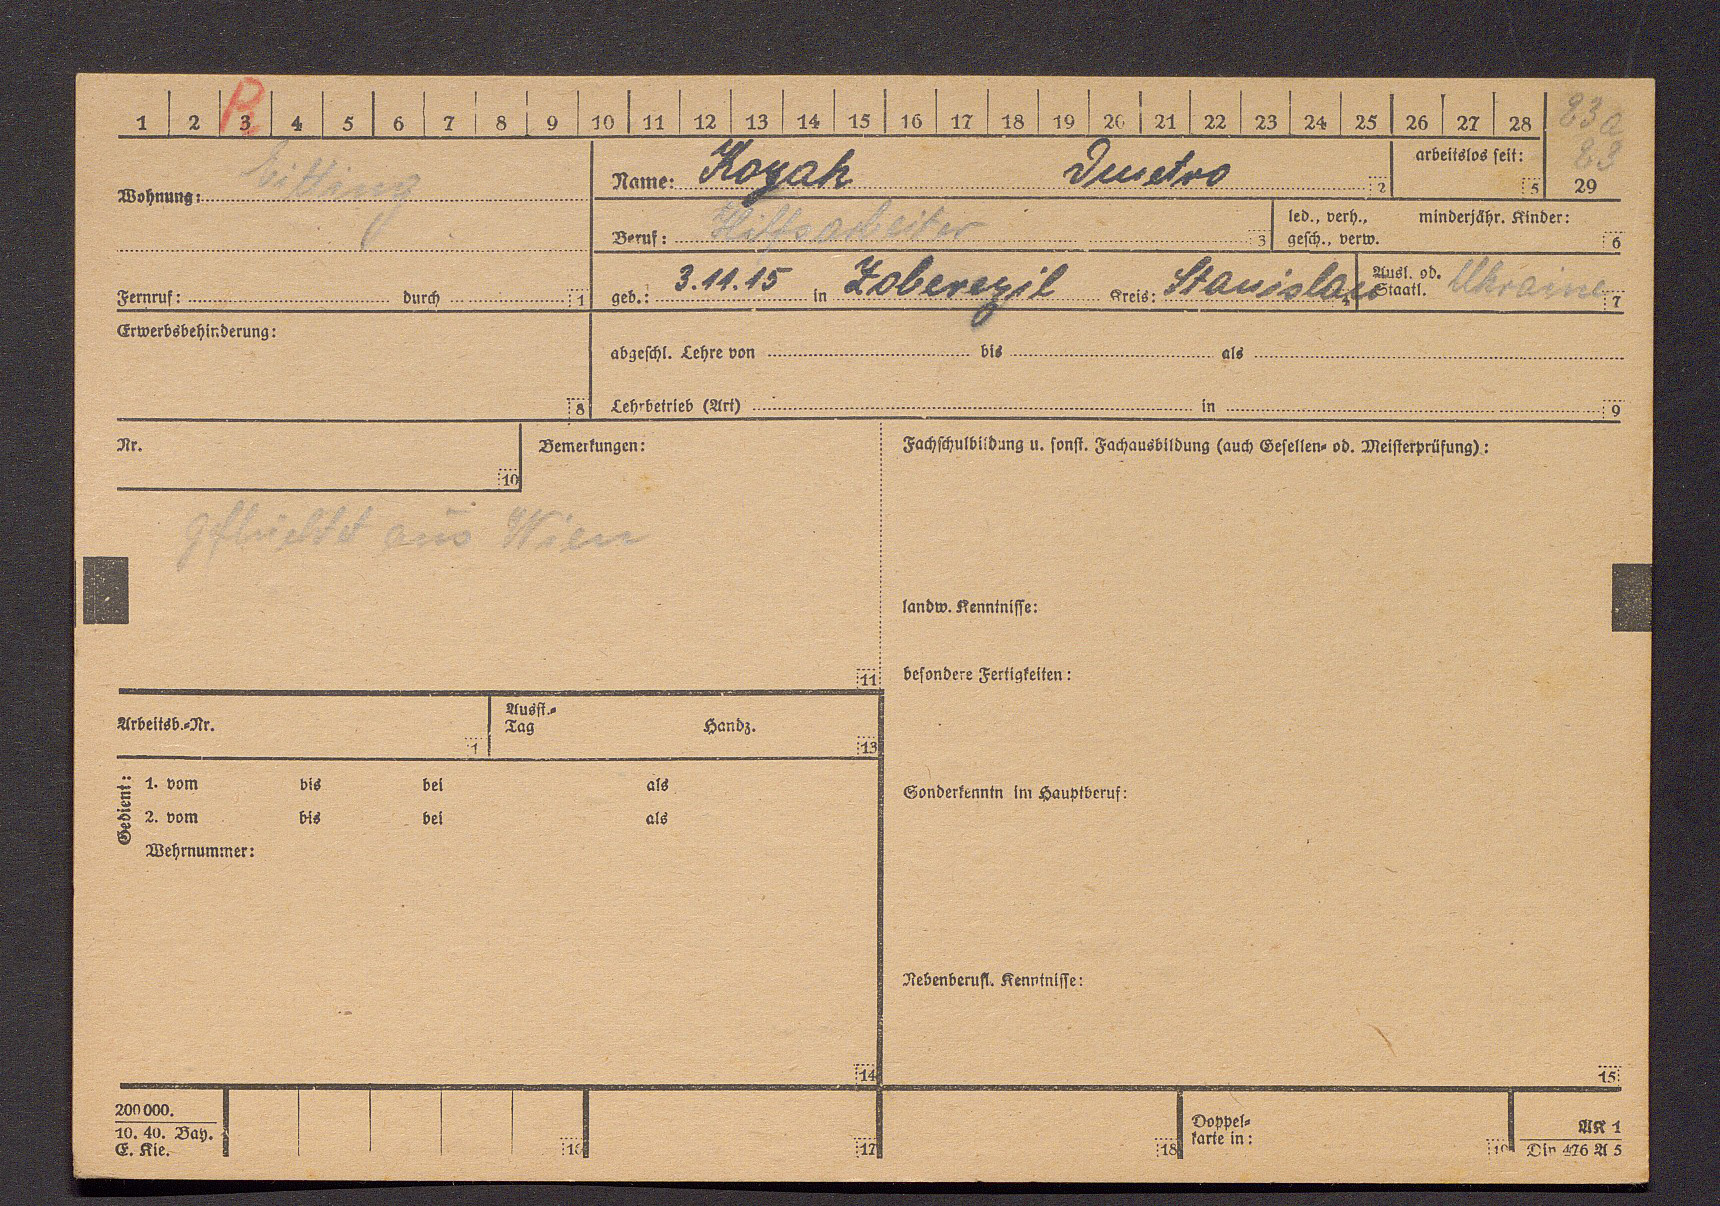 R
1 2 3 4 5 6 7 8 9 10 11 12 13 14 15 16 17 18 19 20 21 22 23 24 25 26 27 28
83a
83
29
Wohnung: Eitting
Name: Kozak Dmetro 2
arbeitslos seit: 5
Beruf: Hilfsarbeiter 3
led., verh., minderjähr. Kinder:
gesch., verw. 6
Fernruf: durch 1
geb.: 3.11.15 in Zoberezil Kreis: Stanislau
Ausl. od. Staatl. Ukraine 7
Erwerbsbehinderung: 8
abgeschl. Lehre von bis als
Lehrbetrieb (Art) in 9
Nr. 10
Bemerkungen:
Fachschulbildung u. sonst. Fachausbildung (auch Gesellen= od. Meisterprüfung):
aus Wien
landw. Kenntnisse:
besondere Fertigkeiten:
11
Arbeitsb.=Nr. 1
Ausst.=
Tag Handz. 13
Gedient:
1. vom bis bei als
2. vom bis bei als
Wehrnummer:
Sonderkenntn im Hauptberuf:
Nebenberufl. Kenntnisse:
14
15
200000.
10. 40. Bay.
E. Kie.
16
17
18
Doppel=
karte in:
19
AK 1
Din 476 A 5